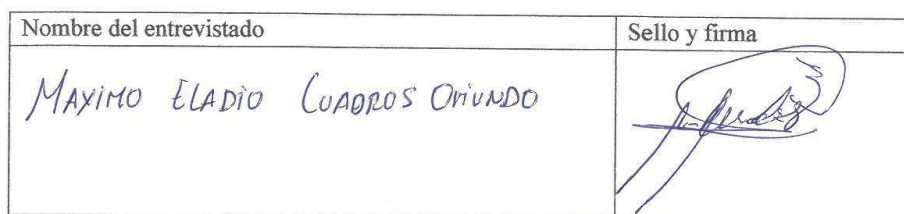 Nombre del entrevistado
Sello y firma
MAXIMO ELADIO CUADROS ORIUNDO